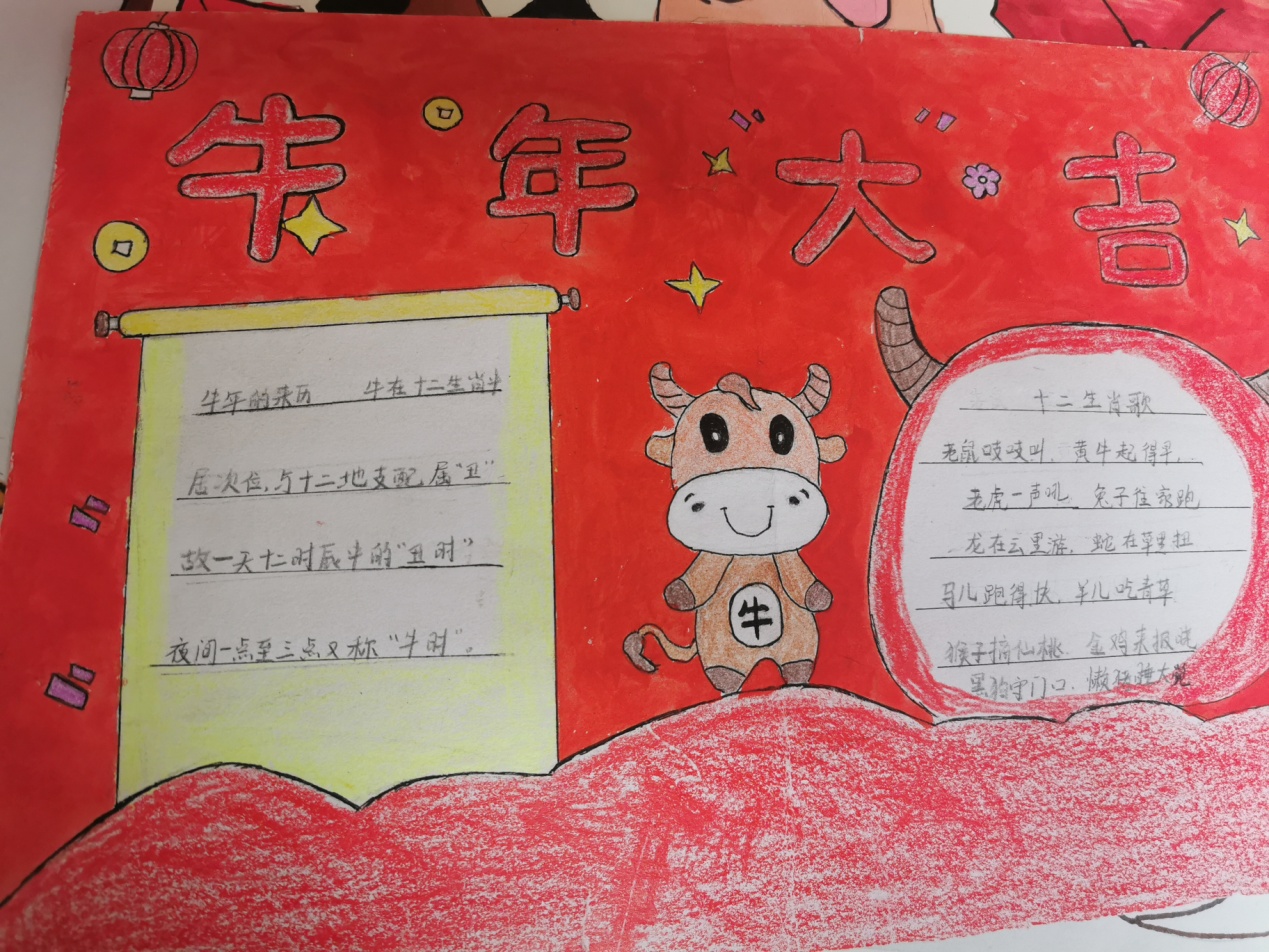 牛年大吉
牛年的来历 牛在十二生肖中
居次位,与十二地支配属“丑”
故一天十二时辰中的“丑时”
夜间一点至三点又称“牛时”。
牛
十二生肖歌
老鼠吱吱叫,黄牛起得早,
老虎一声吼 兔子往家跑
龙在云里游,蛇在草里扭
马儿跑得快,羊儿吃青草
猴子摘仙桃 金鸡来报晓
黑狗守门口,懒猪睡大觉